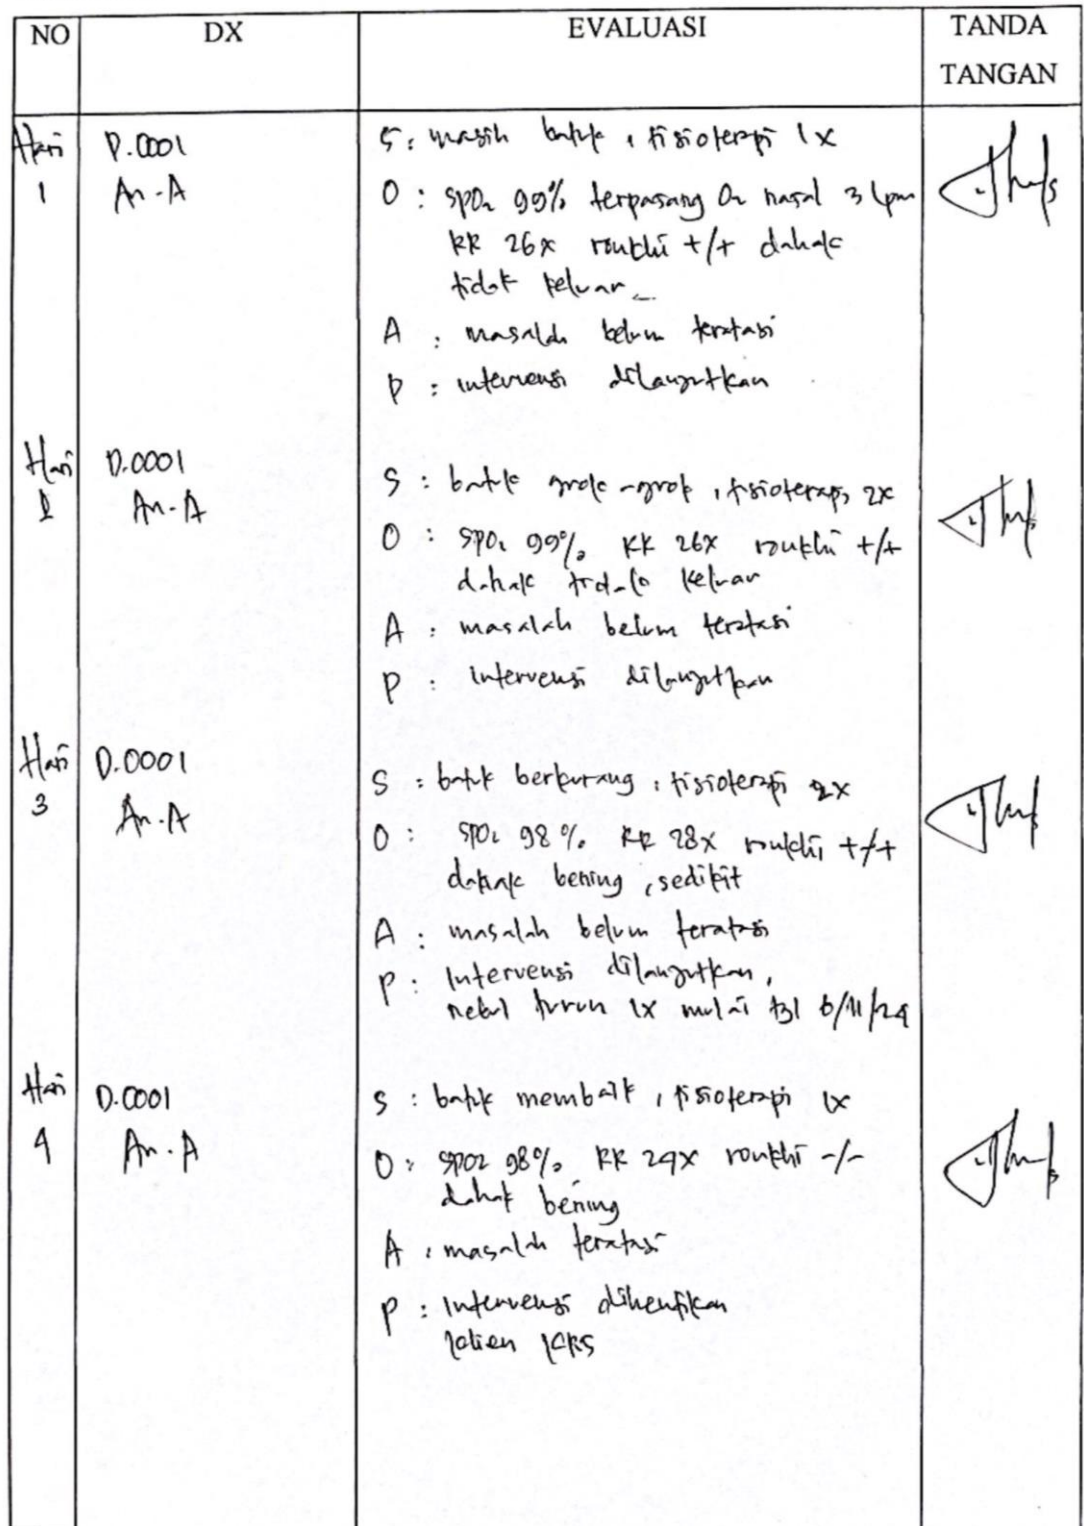 NO DX EVALUASI TANDA TANGAN
Hari 1 D.0001 An-A
S : masih batuk , fisioterapi 1x
O : SpO2 99% terpasang O2 nasal 3 lpm
RR 26x ronkhi +/+ dahak
tidak keluar
A : masalah belum teratasi
P : intervensi dilanjutkan
Hari 2 D.0001 An-A
S : batuk grok-grok , fisioterapi 2x
O : SPO2 99% RR 26x ronkhi +/+
dahak tidak keluar
A : masalah belum teratasi
P : intervensi dilanjutkan
Hari 3 D.0001 An-A
S : batuk berkurang , fisioterapi 2x
O : SPO2 98% RR 28x ronkhi +/+
dahak bening , sedikit
A : masalah belum teratasi
P : Intervensi dilanjutkan,
nebul turun 1x mulai tgl 6/11/24
Hari 4 D.0001 An-A
S : batuk membaik , fisioterapi 1x
O : SPO2 98% RR 24x ronkhi -/-
dahak bening
A : masalah teratasi
P : Intervensi dihentikan
Pasien KRS